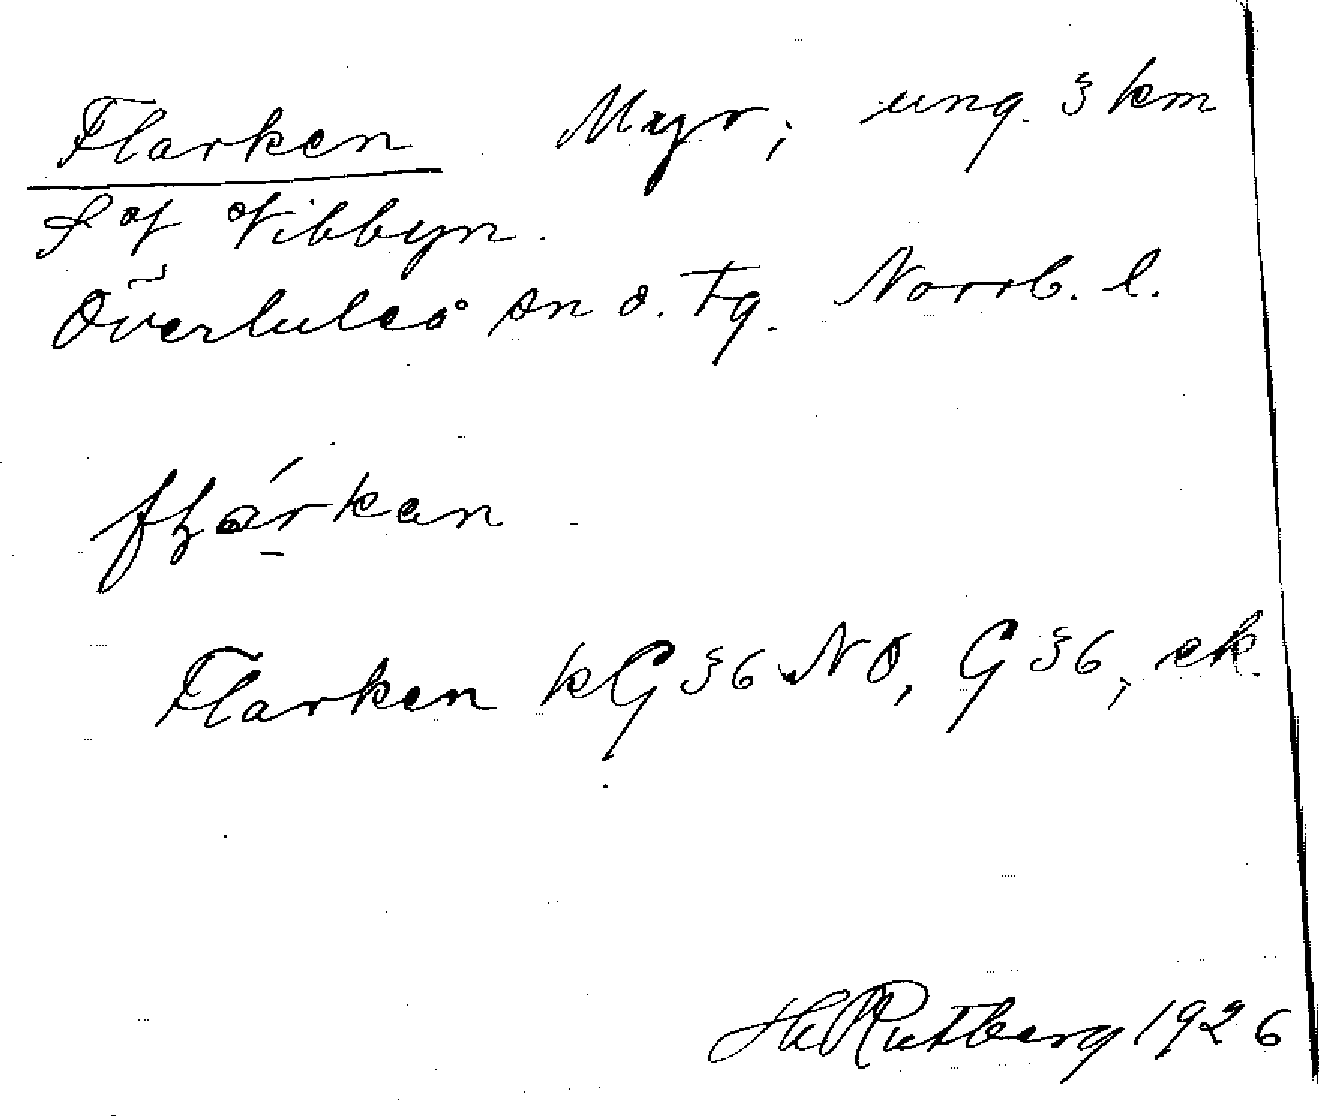 Flarken Myr, ung. 3 km
S of Vibbyn.
Överluleå sn o. tg. Norrb. l.
Flarken kG 36 NO, G 36, ek.
H Rutberg 1926